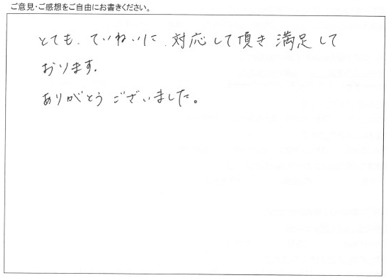 ご意見・ご感想をご自由にお書きください。
とても、ていねいに、対応して頂き満足して
おります。
ありがとうございました。